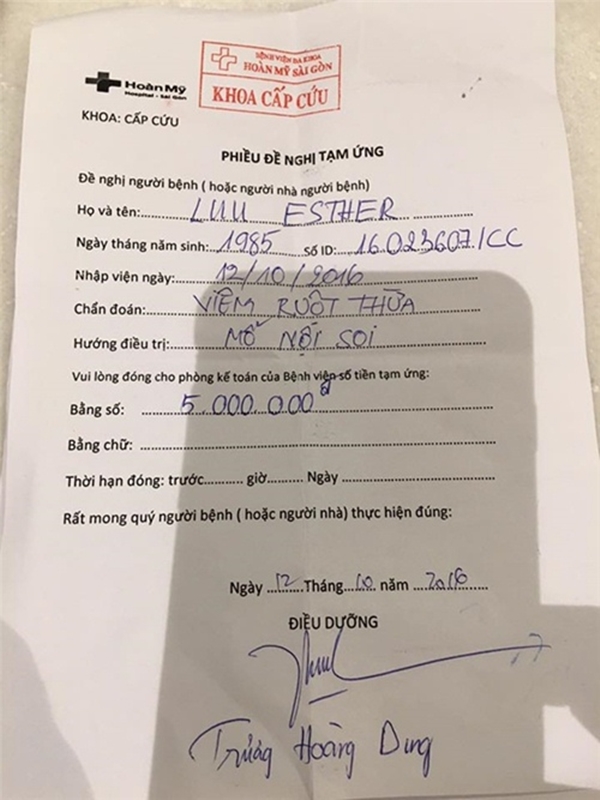 BỆNH VIỆN ĐA KHOA
HOÀN MỸ SÀI GÒN
KHOA CẤP CỨU
Hoàn Mỹ
Hospital - Sài Gòn
KHOA: CẤP CỨU
PHIẾU ĐỀ NGHỊ TẠM ỨNG
Đề nghị người bệnh ( hoặc người nhà người bệnh)
Họ và tên: LUU ESTHER
Ngày tháng năm sinh: 1985 Số ID: 16.023607/CC
Nhập viện ngày: 12/10/2016
Chẩn đoán: VIÊM RUỘT THỪA
Hướng điều trị: MỔ NỘI SOI
Vui lòng đóng cho phòng kế toán của Bệnh viện số tiền tạm ứng:
Bằng số: 5.000.000đ
Bằng chữ:
Thời hạn đóng: trước........... giờ.......... Ngày
Rất mong quý người bệnh ( hoặc người nhà) thực hiện đúng:
Ngày 12 Tháng 10 năm 2016
ĐIỀU DƯỠNG
Hoàng Dung